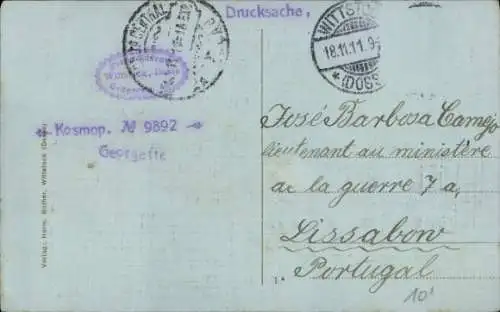 Drucksache,
WITTSTO
18.11.11. 9-
* (DOSS
CENTRAL
Kosmop. № 9892
Georgette
José Barbosa Camejo
lieutenant au ministère
de la guerre 7a,
Lissabow
Portugal
10'
Verlag: Hans. Wittstock (Dosse)